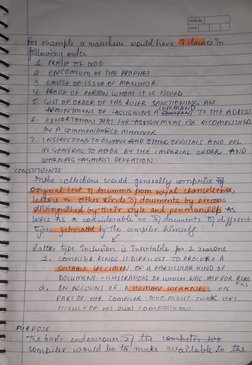 For example a manshur would have 7 clauses in
following order
1. PRAISE OF GOD
2. ENCOMIUM OF THE PROPHET
3. CAUSE OF ISSUE OF MANSHUR
4. PRAISE OF PERSON WHOM IT IS ISSUED
5. GIST OF ORDER OF THE RULER SANCTIONING AN
APPOINTMENT OF ASSIGNING A COMMAND TO THE
6. EXHORTATION THAT THE ASSIGNMENT BE ACCOMPLISHED
IN A COMMENDABLE MANNER
7. INSTRUCTIONS TO OTHER OFFICIALS AND PPL
IN GENERAL TO ABIDE BY THE IMPERIAL ORDER AND
WARNING AGAINST
CONSTITUENTS
Insha collections would generally comprise of
original text of documents from royal chanceleries,
letters or other kinds of documents by persons
distinguished by their style and penmanship as
well as a considerable no of documents of different
types fabricated by the compiler himself.
Latter type inclusion is inevitable for 2 reasons
1. COMPILER FINDS IT DIFFICULT TO PROCURE A
SUITABLE SPECIMEN OF A PARTICULAR KIND OF
DOCUMENT - ILLUSTRATION OF WHICH WAS IMP FOR READ
ERS
2. ON ACCOUNT OF A HUMAN WEAKNESS ON
PART OF THE COMPILER WHO MIGHT
HIGHLY OF HIS OWN COMPOSITIONS.
PURPOSE
The basic endeavour of the
compiler would be to make available to the